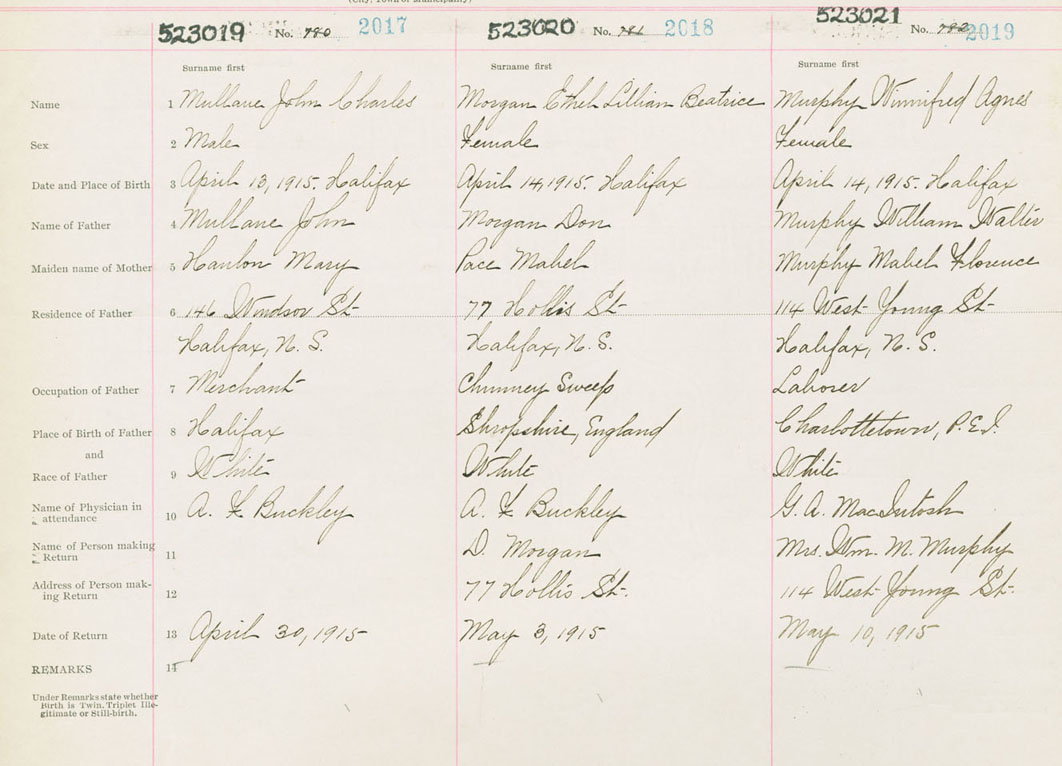 (City, Town or Municipality)
523019 No. 780 2017 523020 No. 781 2018 523021 No. 782 2019
Surname first Surname first Surname first
Name 1 Mullane John Charles Morgan Ethel Lillian Beatrice Murphy Winnifred Agnes
Sex 2 Male Female Female
Date and Place of Birth 3 April 13, 1915. Halifax April 14, 1915. Halifax April 14, 1915. Halifax
Name of Father 4 Mullane John Morgan Don Murphy William Walter
Maiden name of Mother 5 Hanlon Mary Pace Mabel Murphy Mabel Florence
Residence of Father 6 146 Windsor St 77 Hollis St 114 West Young St
Halifax, N. S. Halifax, N. S. Halifax, N. S.
Occupation of Father 7 Merchant Chimney Sweep Laborer
Place of Birth of Father 8 Halifax Shropshire, England Charlottetown, P.E.I.
and
Race of Father 9 White White White
Name of Physician in attendance 10 A. F. Buckley A. F. Buckley G. A. MacIntosh
Name of Person making Return 11 D. Morgan Mrs. Wm. M. Murphy
Address of Person mak-
ing Return 12 77 Hollis St. 114 West Young St.
Date of Return 13 April 30, 1915 May 3, 1915 May 10, 1915
REMARKS 14
Under Remarks state whether
Birth is Twin, Triplet Ille-
gitimate or Still-birth.